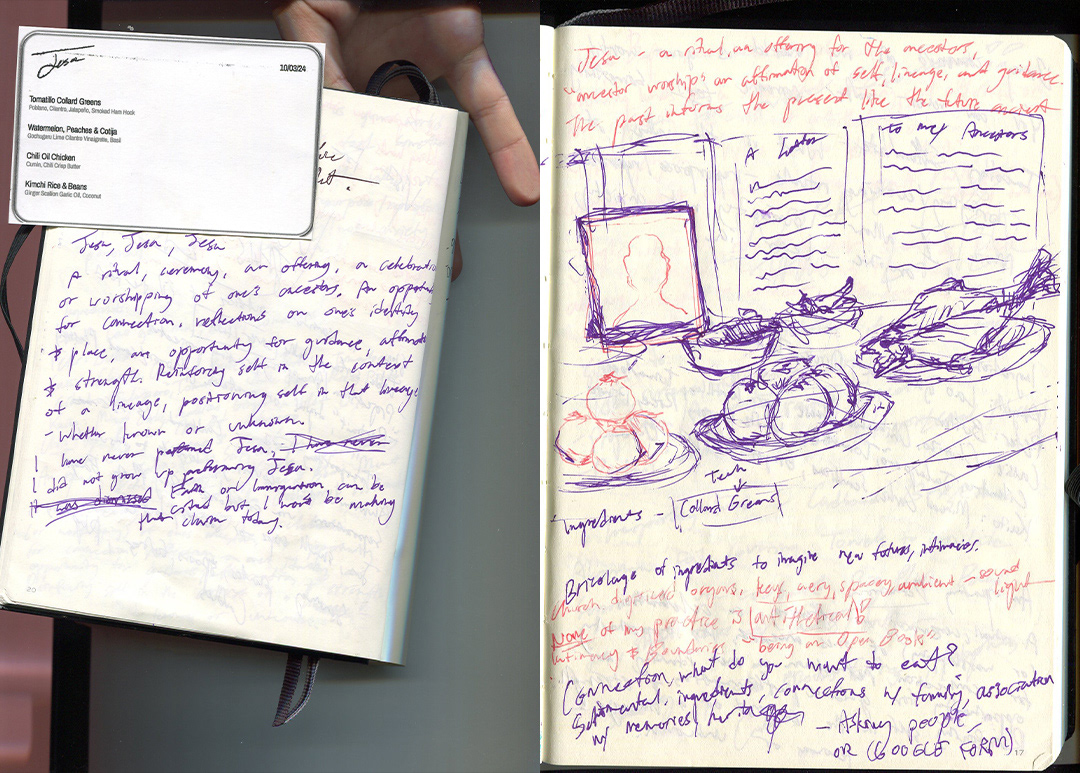 Jesa
10/03/24
Tomatillo Collard Greens
Poblano, Cilantro, Jalapeño, Smoked Ham Hock
Watermelon, Peaches & Cotija
Gochugaru Lime Cilantro Vinaigrette, Basil
Chili Oil Chicken
Cumin, Chili Crisp Butter
Kimchi Rice & Beans
Ginger Scallion Garlic Oil, Coconut
Jesa, Jesa, Jesa
A ritual, ceremony, an offering, a celebratio
or worshipping of one's ancestors. An opportun
for connection, reflections on one's identity
& place, an opportunity for guidance, affirmati
& strength. Reinforcing self in the context
of a lineage, positioning self in that lineage
- whether known or unknown.
I have never Jesa, I have never
I did not grow up performing Jesa.
it was dismissed Faith or immigration can be
cited but I won't be making
that claim today.
20
Jesa - a ritual, an offering for the ancestors,
"ancestor worship" an affirmation of self, lineage, and guidance.
The past informs the present like the future
A Letter
to my Ancestors
Teuk
Ingredients - Collard Greens
Bricolage of ingredients to imagine new futures, intimacies.
church, digitized organs, keys, airy, spacey, ambient - sound
light
None of my practice is antithetical?
Intimacy & Boundaries - "being an Open Book"
Connection, what do you want to eat?
Sentimental, ingredients, connections w/ family, association
w/ memories,
- Asking people
OR (GOOGLE FORM)
17